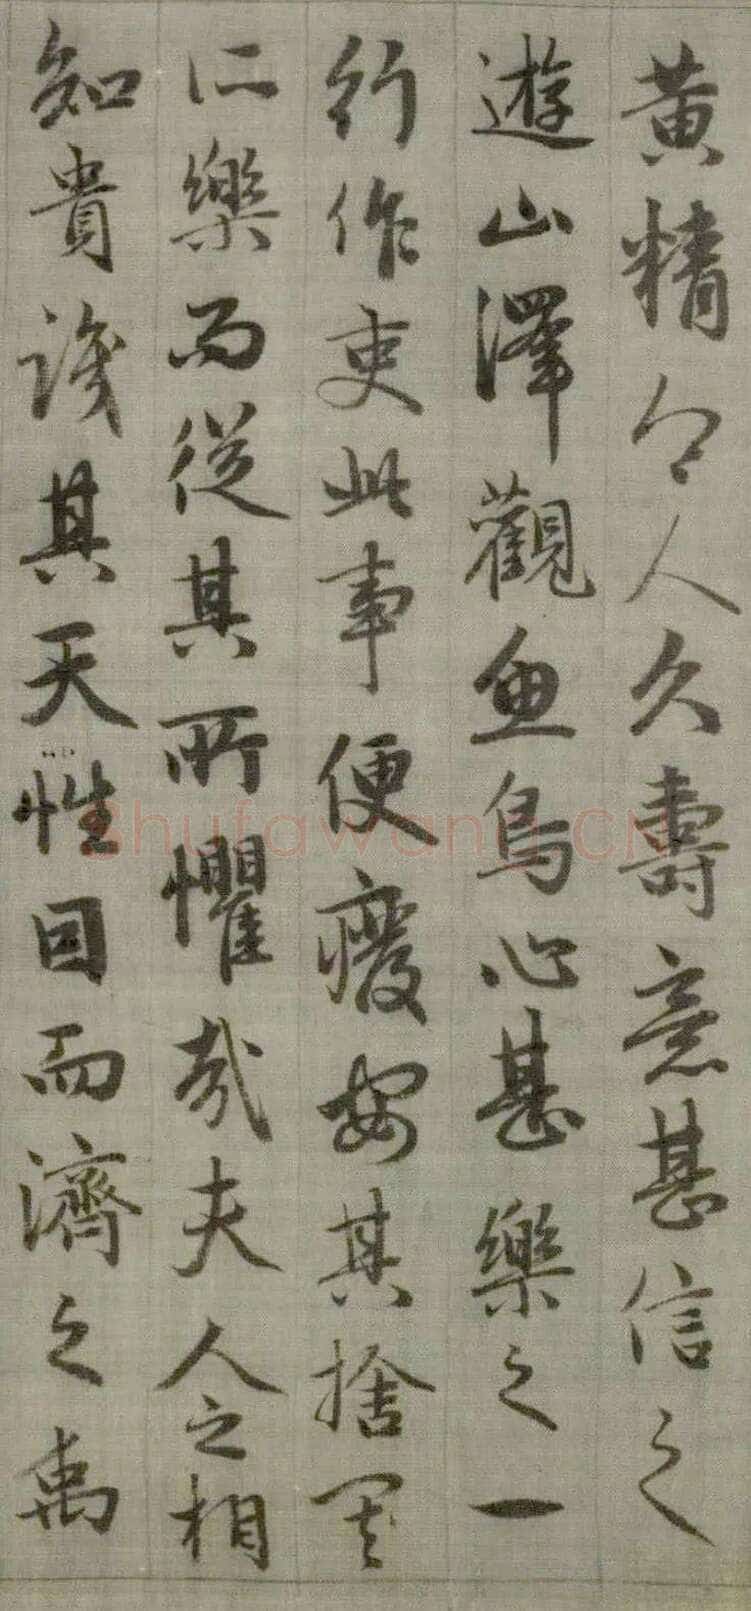 黄精令人久壽意甚信之
遊山澤觀魚鳥心甚樂之一
行作吏此事便癈安其捨其
所樂而從其所懼哉夫人之相
知貴識其天性因而濟之禹
Shufawang.CN